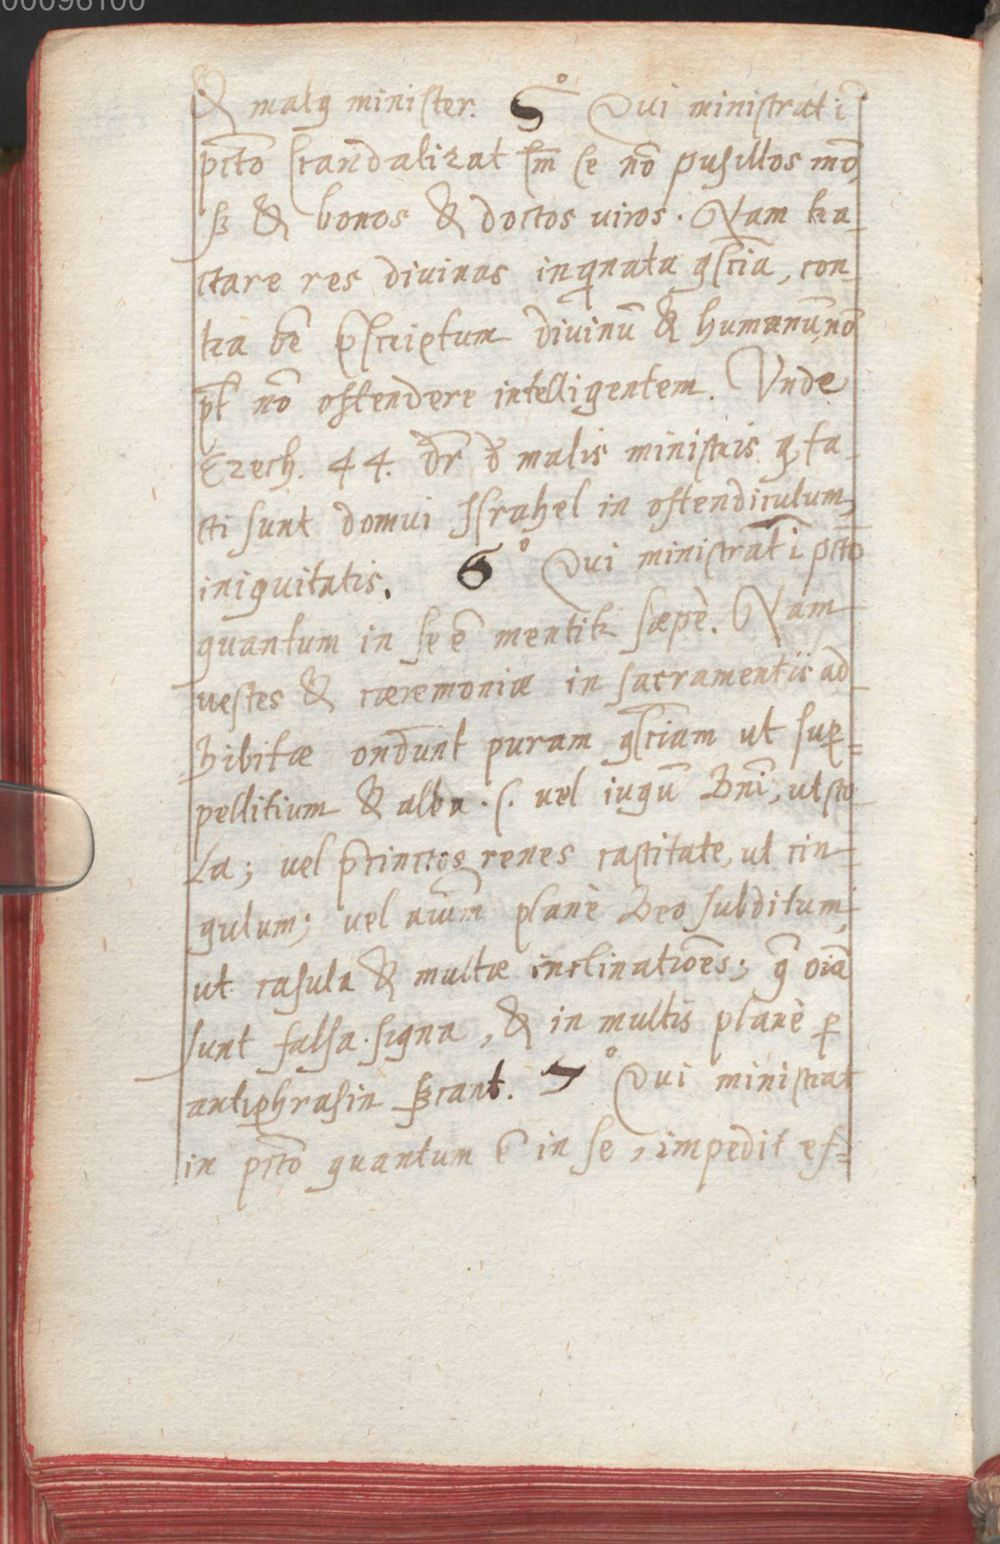 00096100
& malꝰ minister. 5° Qui ministrat ī
pctō scandalizat sm̄ se nō pusillos mō,
sꝫ & bonos & doctos viros. Nam tra
ctare res divinas inqnata gscīa, con
tra oē pscriptum divinū & humanū, nō
pt nō ostendere intelligentem. Vnde
Ezech. 44. dr̄ d malis ministris q fa
cti sunt domui Israhel in ostendiculum
iniquitatis. 6° Qui ministrat ī pctō
quantum in se ē mentitr sæpè. Nam
vestes & cæremoniæ in sacramentis ad
hibitæ ondunt puram gsciam ut sup=
pellitium & alba. s. vel iugū Dnī, ut sto
la; vel pcinctos renes castitate, ut cin
gulum; vel aīum planè Deo subditum,
ut casula & multæ inclinatiōes; q̄ oīa
sunt falsa signa, & in multis planè p
antiphrasin sꝫcant. 7° Qui ministrat
in pctō quantum ē in se, impedit ef=